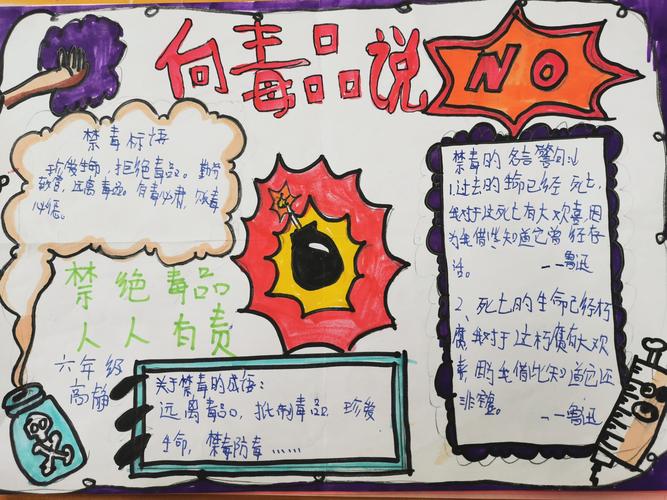 向毒品说 NO
禁毒标语
珍爱生命,拒绝毒品。勤劳
致富,远离毒品,有毒必肃,贩毒
必惩。
禁绝毒品
人人有责
六年级
高静
关于禁毒的成语:
远离毒品,抵制毒品 珍爱
生命,禁毒防毒……
禁毒的名言警句
1.过去的生命已经死亡,
我对于这死亡有大欢喜因
为我借此知道它曾经存
活。 ——鲁迅
2、死亡的生命已经朽
腐我对于这朽腐有大欢
喜,因我借此知道它还
非空虚。 ——鲁迅